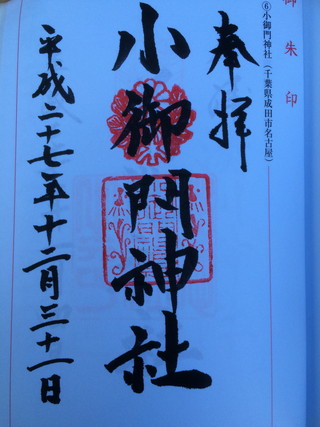 御朱印
⑥小御門神社（千葉県成田市名古屋）
奉拝
小御門神社
平成二十七年十二月三十一日